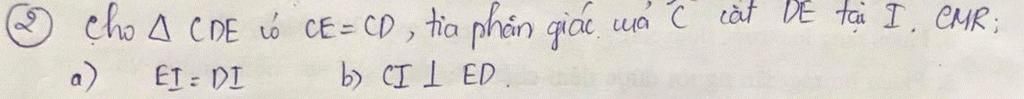 ② Cho Δ CDE có CE = CD, tia phân giác của Ĉ cắt DE tại I. CMR:
a) EI = DI b) CI ⊥ ED.